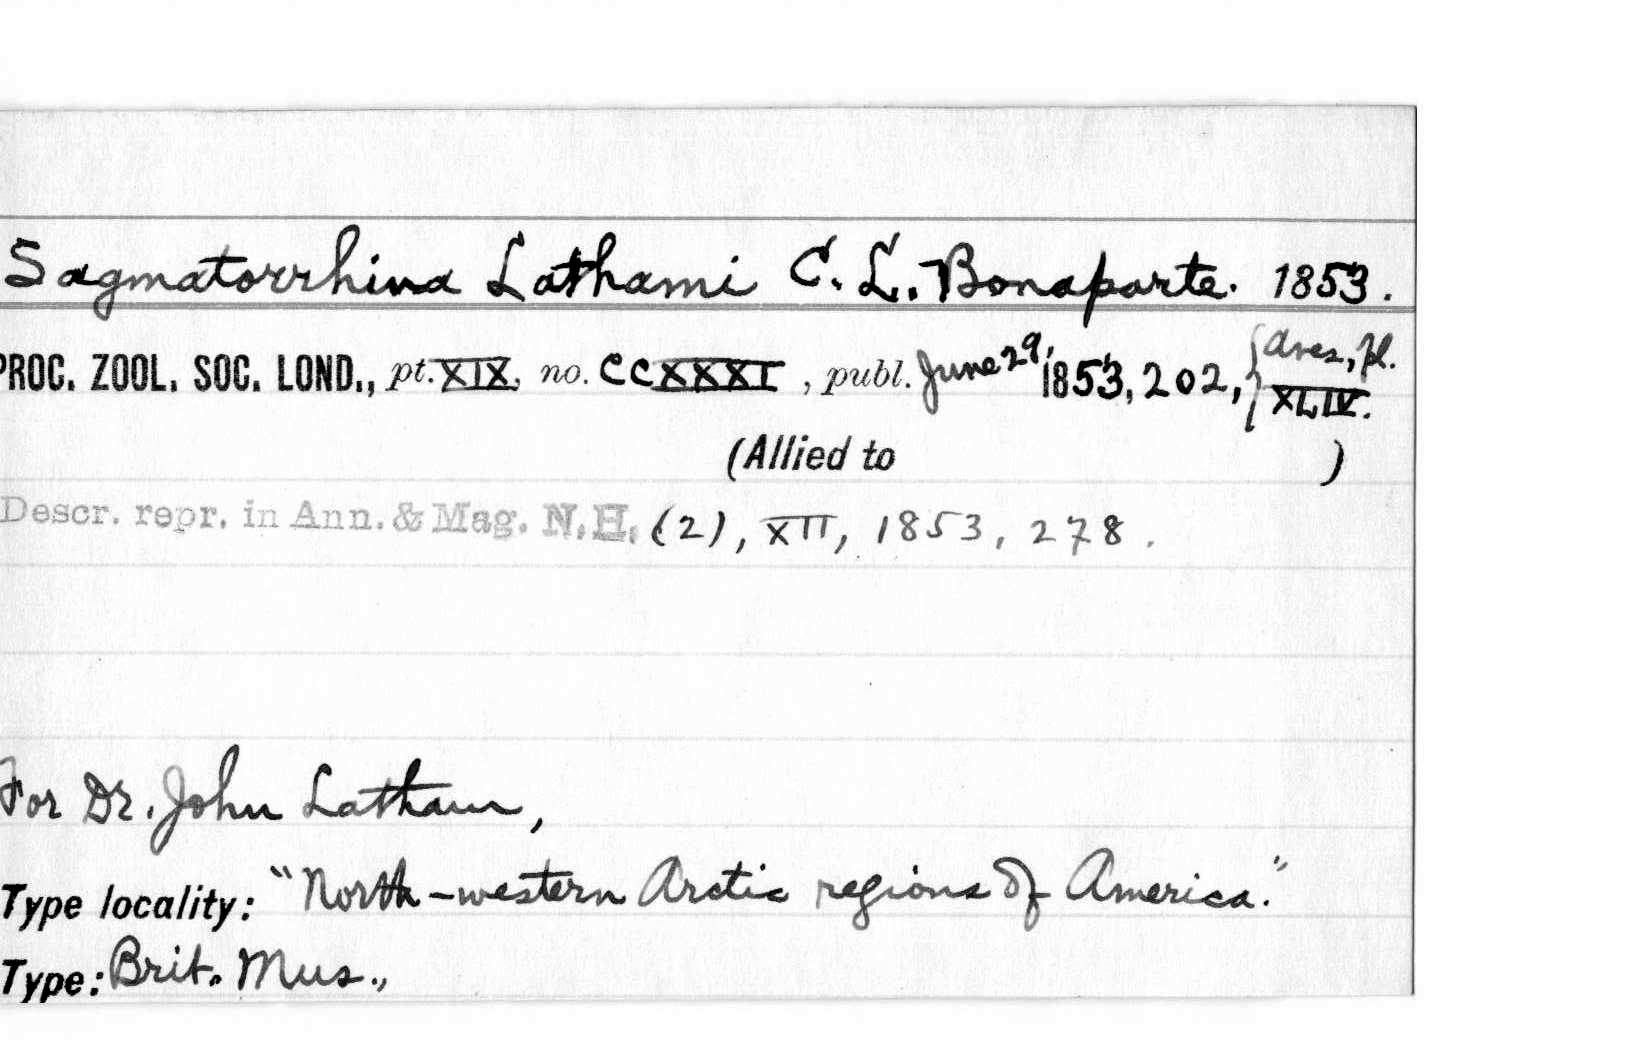 Sagmatorrhina Lathami C. L. Bonaparte. 1853.
PROC. ZOOL. SOC. LOND., pt. XIX, no. CCXXXI, publ. June 29, 1853, 202, {Aves, pl. XLIV.
(Allied to )
Descr. repr. in Ann. & Mag. N.H. (2), XII, 1853, 278.
For Dr. John Latham,
Type locality: "North-western Arctic regions of America."
Type: Brit. Mus.,